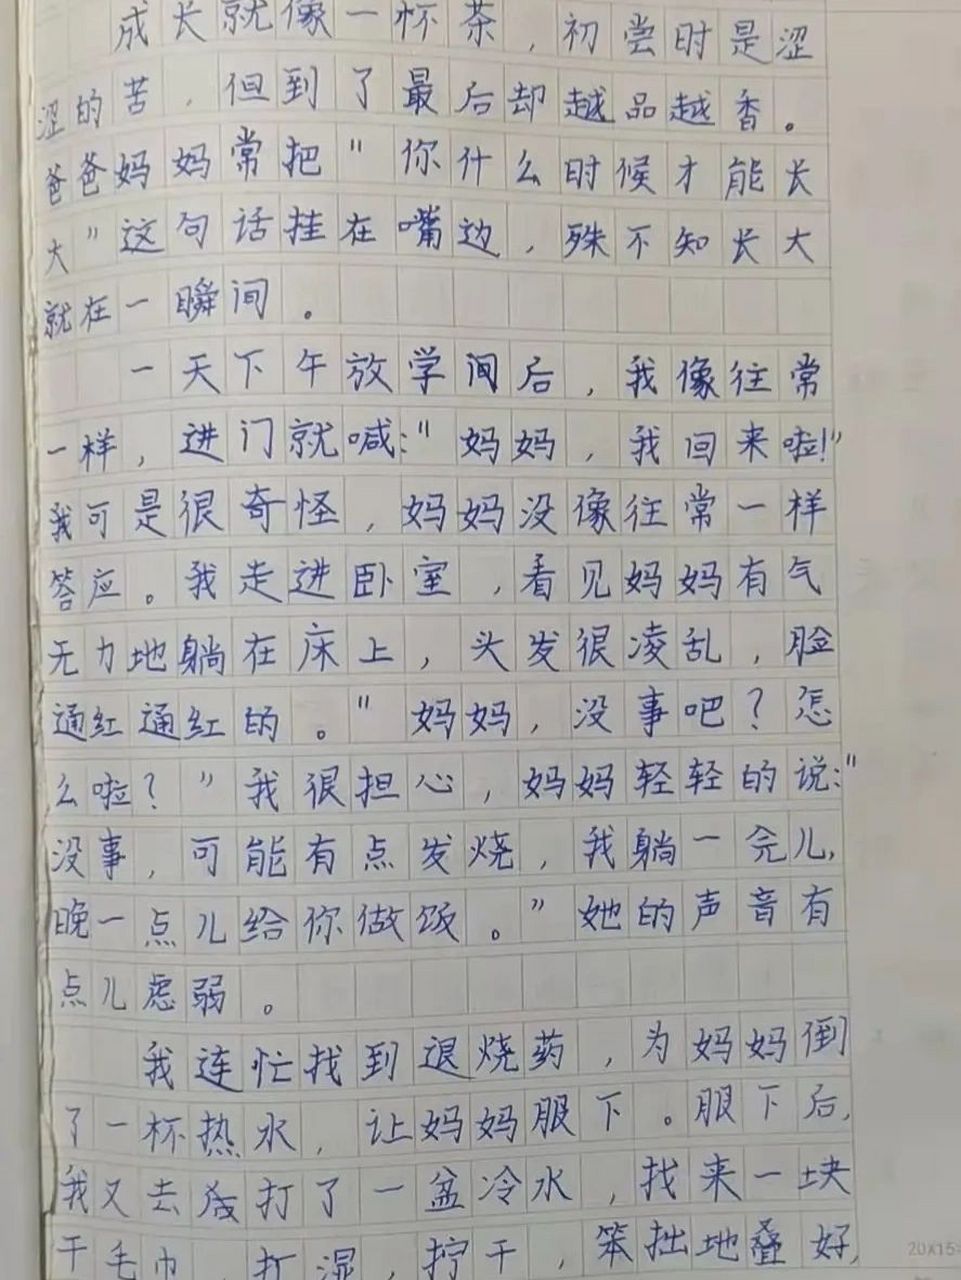 成长就像一杯茶，初尝时是涩
涩的苦，但到了最后却越品越香。
爸爸妈妈常把"你什么时候才能长
大"这句话挂在嘴边，殊不知长大
就在一瞬间。
一天下午放学间后，我像往常
一样，进门就喊："妈妈，我回来啦！"
我可是很奇怪，妈妈没像往常一样
答应。我走进卧室，看见妈妈有气
无力地躺在床上，头发很凌乱，脸
通红通红的。"妈妈，没事吧？怎
么啦？"我很担心，妈妈轻轻的说："
没事，可能有点发烧，我躺一会儿，
晚一点儿给你做饭。"她的声音有
点儿虑弱。
我连忙找到退烧药，为妈妈倒
了一杯热水，让妈妈服下。服下后，
我又去打了一盆冷水，找来一块
干毛巾，打湿，拧干，笨拙地叠好，
20X15=